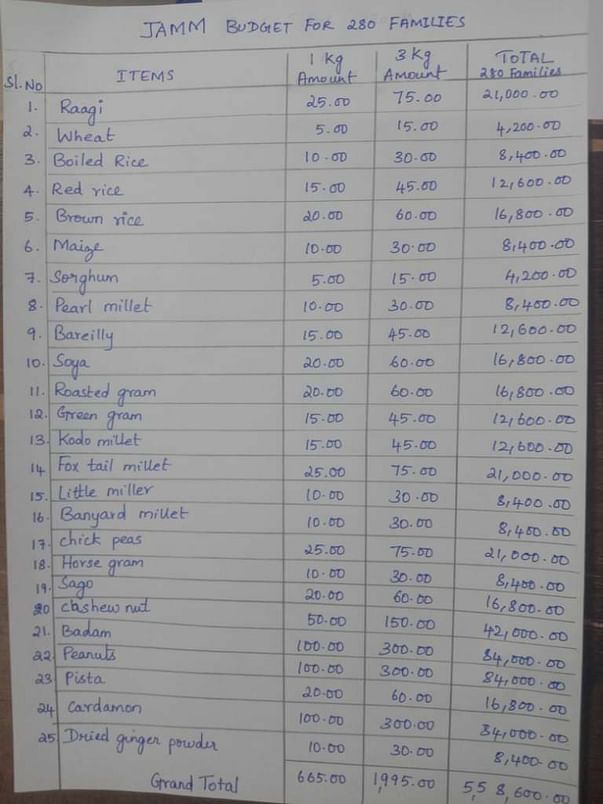 JAMM BUDGET FOR 280 FAMILIES
Sl. No ITEMS 1 Kg Amount 3 Kg Amount TOTAL 280 Families
1. Raagi 25.00 75.00 21,000.00
2. Wheat 5.00 15.00 4,200.00
3. Boiled Rice 10.00 30.00 8,400.00
4. Red rice 15.00 45.00 12,600.00
5. Brown rice 20.00 60.00 16,800.00
6. Maize 10.00 30.00 8,400.00
7. Sorghum 5.00 15.00 4,200.00
8. Pearl millet 10.00 30.00 8,400.00
9. Bareilly 15.00 45.00 12,600.00
10. Soya 20.00 60.00 16,800.00
11. Roasted gram 20.00 60.00 16,800.00
12. Green gram 15.00 45.00 12,600.00
13. Kodo millet 15.00 45.00 12,600.00
14 Fox tail millet 25.00 75.00 21,000.00
15. Little miller 10.00 30.00 8,400.00
16. Banyard millet 10.00 30.00 8,400.00
17. chick peas 25.00 75.00 21,000.00
18. Horse gram 10.00 30.00 8,400.00
19. Sago 20.00 60.00 16,800.00
20 cashew nut 50.00 150.00 42,000.00
21. Badam 100.00 300.00 84,000.00
22. Peanuts 100.00 300.00 84,000.00
23 Pista 20.00 60.00 16,800.00
24 Cardamon 100.00 300.00 84,000.00
25. Dried ginger powder 10.00 30.00 8,400.00
Grand Total 665.00 1,995.00 5,58,600.00